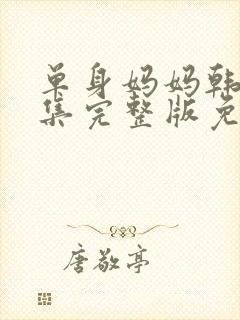 单身妈妈韩
集完整版免
唐敬亭